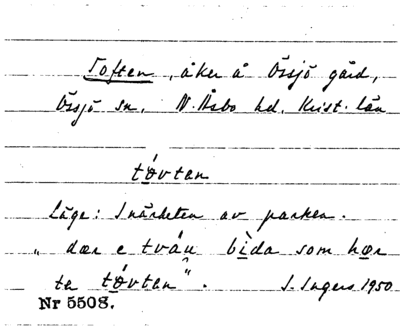 Toften, åker å Össjö gård,
Össjö sn. N. Åsbo hd. Krist. län
tóvtan
Läge: I närheten av parken.
"dær e tvåu bìda som hør
ta tóvtan".
S. Ingers 1950
Nr 5508.